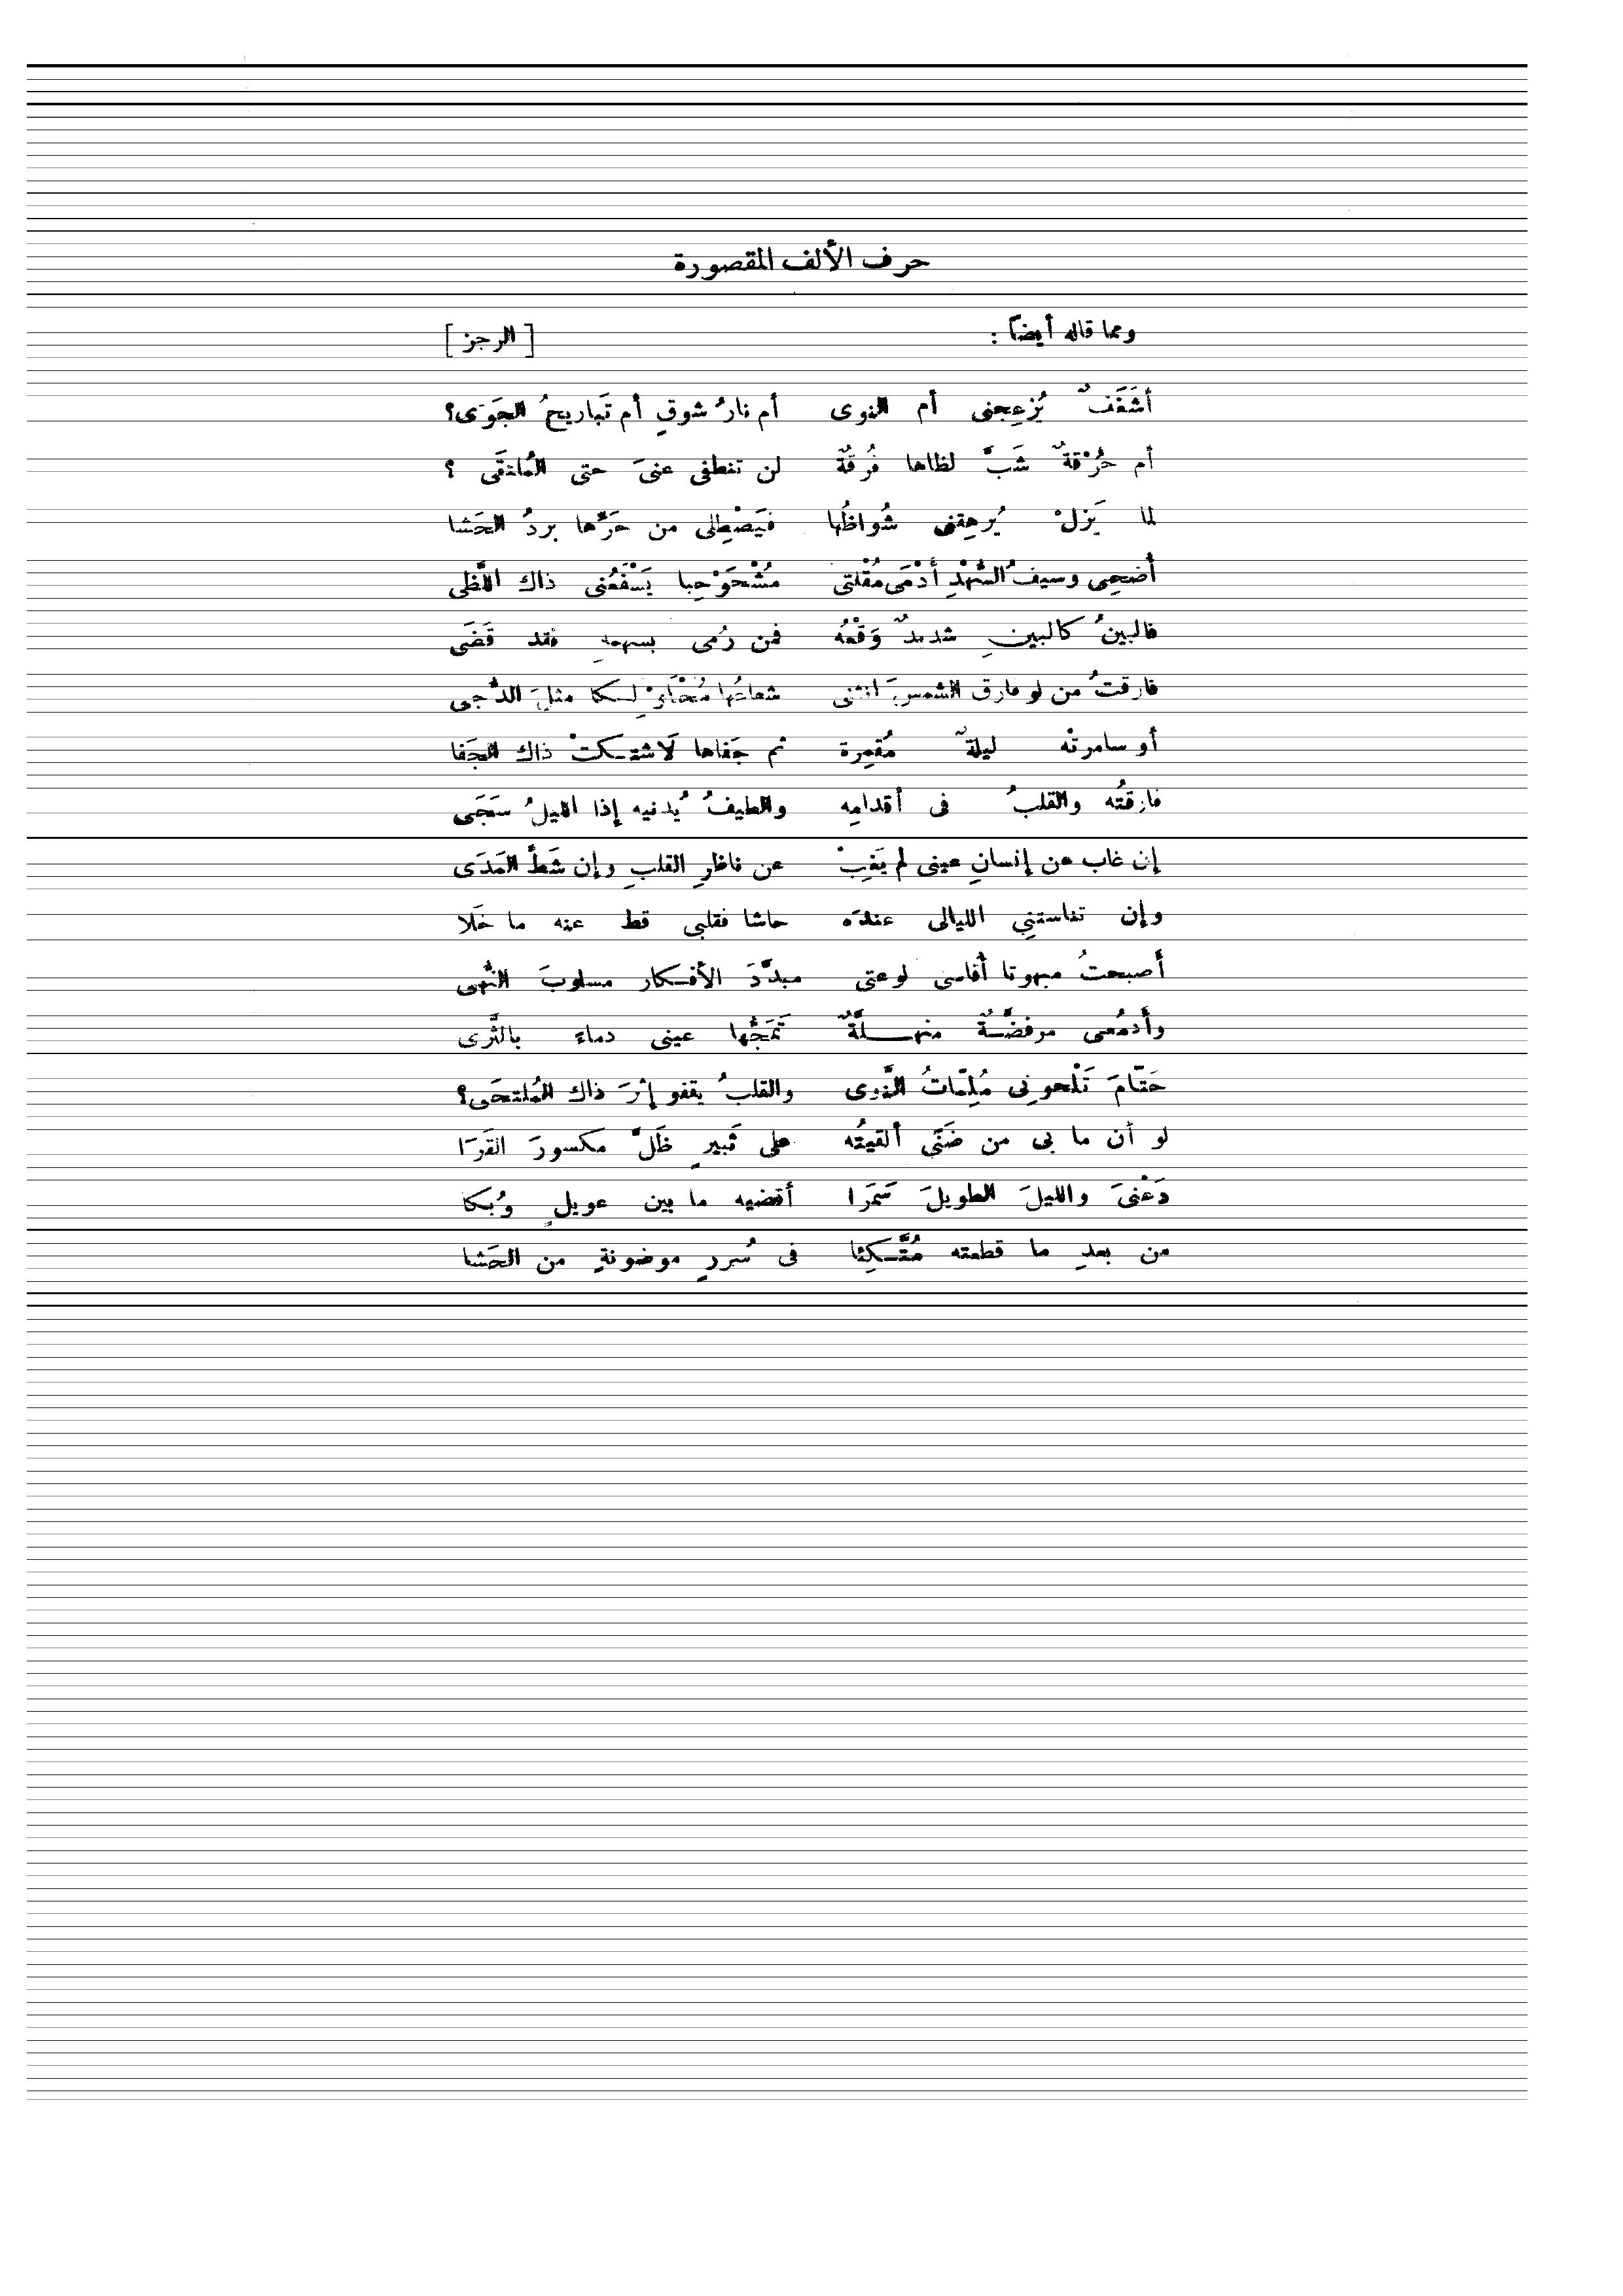 حرف الألف المقصورة
ومما قاله أيضاً : [ الرجز ]
أشَغَفٌ يُزعِجنى أم النوى أم نارُ شوقٍ أم تَباريحُ الجَوَى؟
أم حُرْقةٌ شَبَّ لظاها فُرقةٌ لن تنطفى عنىَ حتى المُلتقَى ؟
لما يَزلْ يُرهِقنى شُواظُها فيَصْطِلى من حَرِّها بردُ الحَشا
أضحِى وسيفُ السُّهْدِ أَدْمَى مُقْلتى مُشْحَوْحِبا يَسْفَعُنى ذاك اللَّظى
فالبينُ كالبينِ شديدٌ وَقْعُهُ فمن رُمى بسهمهِ فقد قَضَى
فارقتُ من لو فارق الشمسَ انثنى شعاعُها مُحْلَوْلِكا مثلَ الدُّجى
أو سامرتْه ليلةٌ مُقمِرة ثم جَفاها لَاشتكتْ ذاك الجَفا
فارقتُه والقلبُ فى أقدامِه والطيفُ يُدنيه إذا الليلُ سَجَى
إن غاب عن إنسانِ عينى لم يَغِبْ عن ناظرِ القلبِ وإن شَطَّ المَدَى
وإن تناستنِي الليالى عندَه حاشا فقلبى قط عنه ما خَلا
أصبحتُ مبهوتا أُقاسى لوعتى مبدَّدَ الأفكار مسلوبَ النُّهى
وأدمُعى مرفضَّةٌ منهلَّةٌ تَمَجُّها عينى دماءً بالثَّرى
حَتّامَ تَلْحونِى مُلِمّاتُ النَّوى والقلبُ يقفو إثرَ ذاك المُلتحَى؟
لو أن ما بى من ضَنًى ألقيتُه على ثَبيرٍ ظَلَّ مكسورَ القَرَا
دَعْنىَ والليلَ الطويلَ سَمَرَا أقضيه ما بين عويلٍ وبُكا
من بعدِ ما قطعته مُتَّكِئا فى سُررٍ موضونةٍ من الحَشا